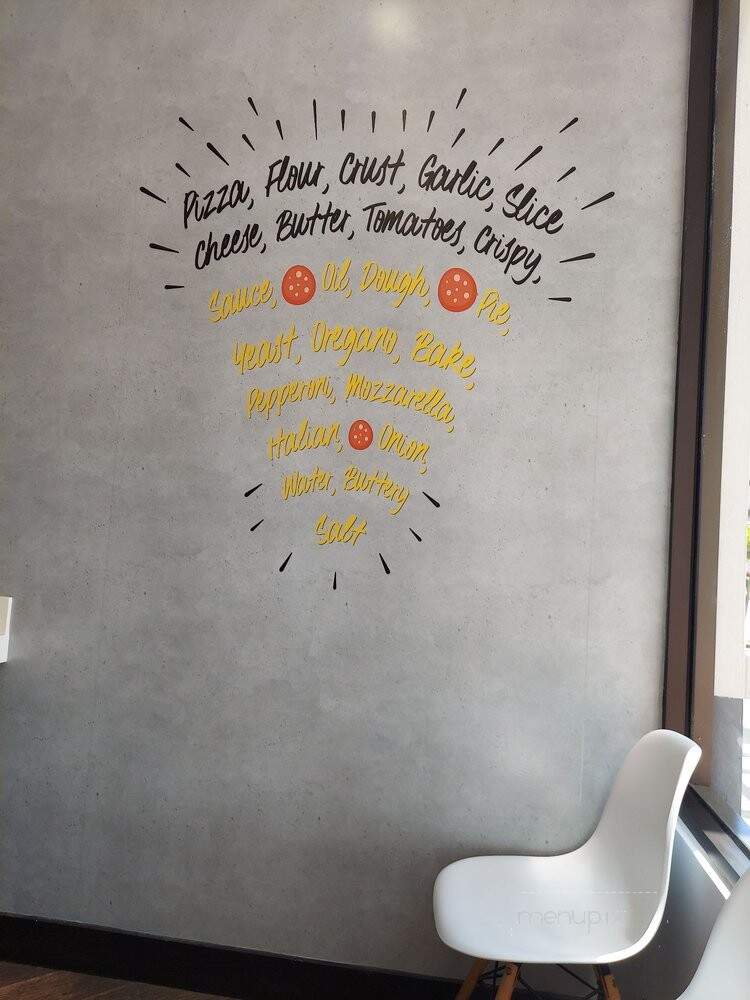 Pizza, Flour, Crust, Garlic, Slice
Cheese, Butter, Tomatoes, Crispy,
Sauce, Oil, Dough, Pie,
Yeast, Oregano, Bake,
Pepperoni, Mozzarella,
Italian, Onion,
Water, Buttery
Salt
menupix